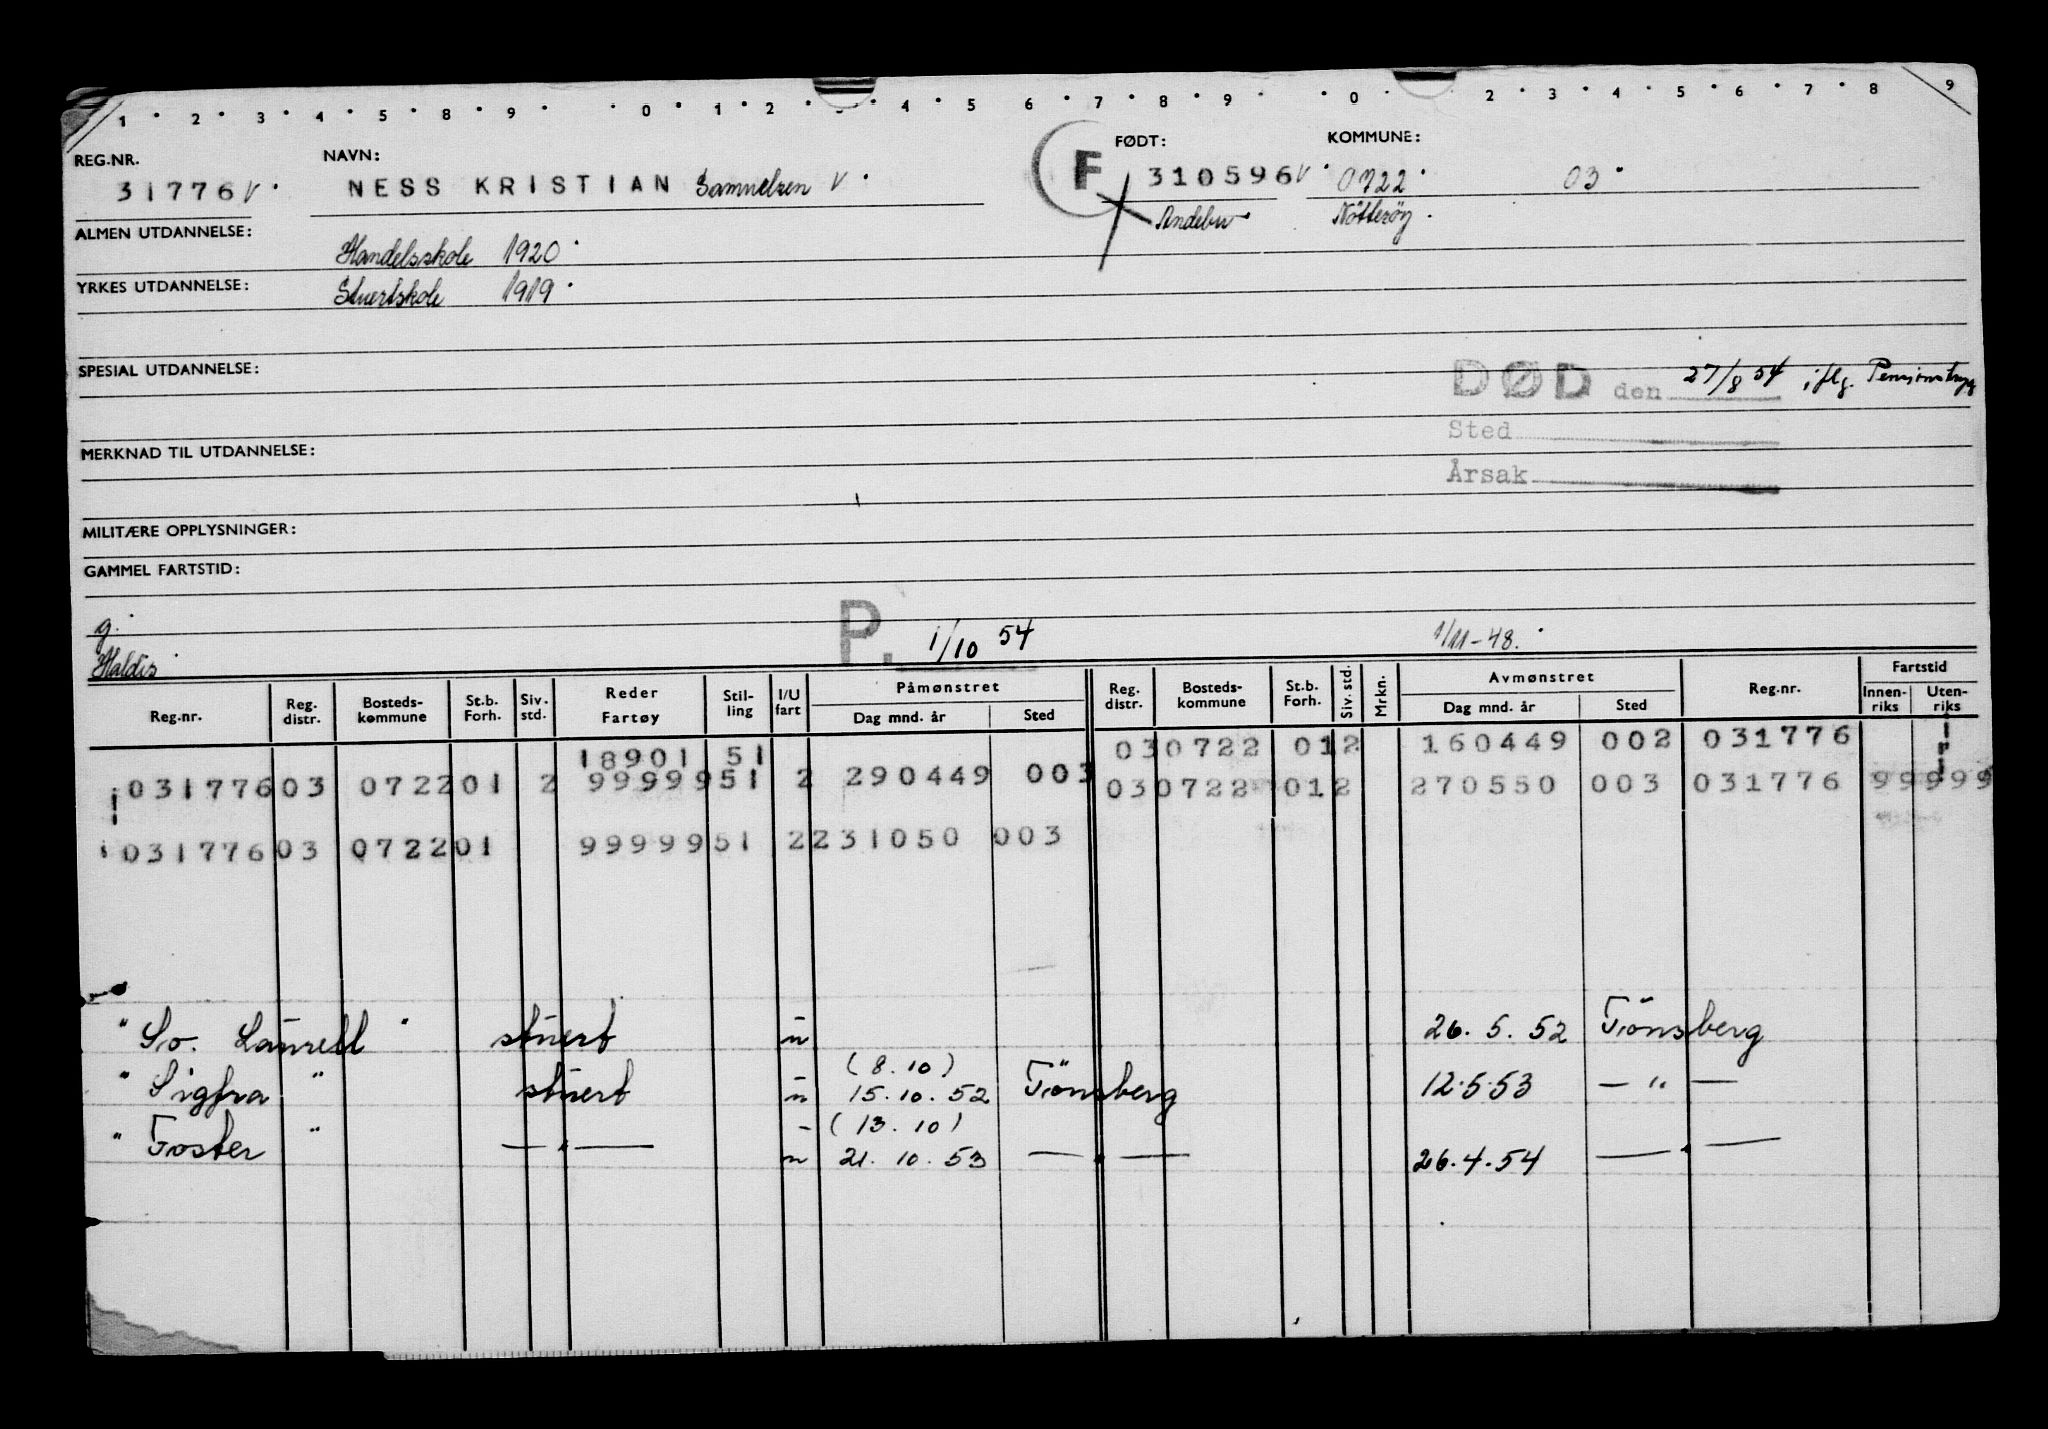 1 · 2 · 3 · 4 · 5 · 8 · 9 · · 0 · 1 · 2 · 4 · 5 6 · 7 · 8 · 9 · · 0 · 2 · 3 · 4 · 5 · 6 · 7 · 8 9
REG.NR. NAVN: F FØDT: KOMMUNE:
31776 V · NESS KRISTIAN Samuelsen V · 310596 V · 0722 · 03 ·
Andebu Nötteröy.
ALMEN UTDANNELSE: Handelsskole 1920 ·
YRKES UTDANNELSE: Stuertskole 1919 ·
SPESIAL UTDANNELSE:
DØD den 27/8 54 iflg. Pensjonstryg
Sted
MERKNAD TIL UTDANNELSE:
Årsak
MILITÆRE OPPLYSNINGER:
GAMMEL FARTSTID:
g. P. 1/10 54 1/11-48.
Haldis
Reg.nr. Reg. distr. Bosteds- kommune St.b. Forh. Siv. std. Reder Fartøy Stil- ling I/U fart Påmønstret Dag mnd. år Sted Reg. distr. Bosteds- kommune St.b. Forh. Siv. std. Mrkn. Avmønstret Dag mnd. år Sted Reg.nr. Fartstid Innen- riks Uten- riks
18901 51 030722 012 160449 002 031776
031776 03 0722 01 2 99999 51 2 290449 003 030722 012 270550 003 031776 99999
031776 03 0722 01 99999 51 2 231050 003
" Sv. Laurell " stuert u 26. 5. 52 Tönsberg
(8. 10)
" Sigfra " stuert u 15. 10. 52 Tönsberg 12.5.53 — " —
(13. 10)
" Toster " — " — u 21. 10. 53 — " — 26.4.54 — " —